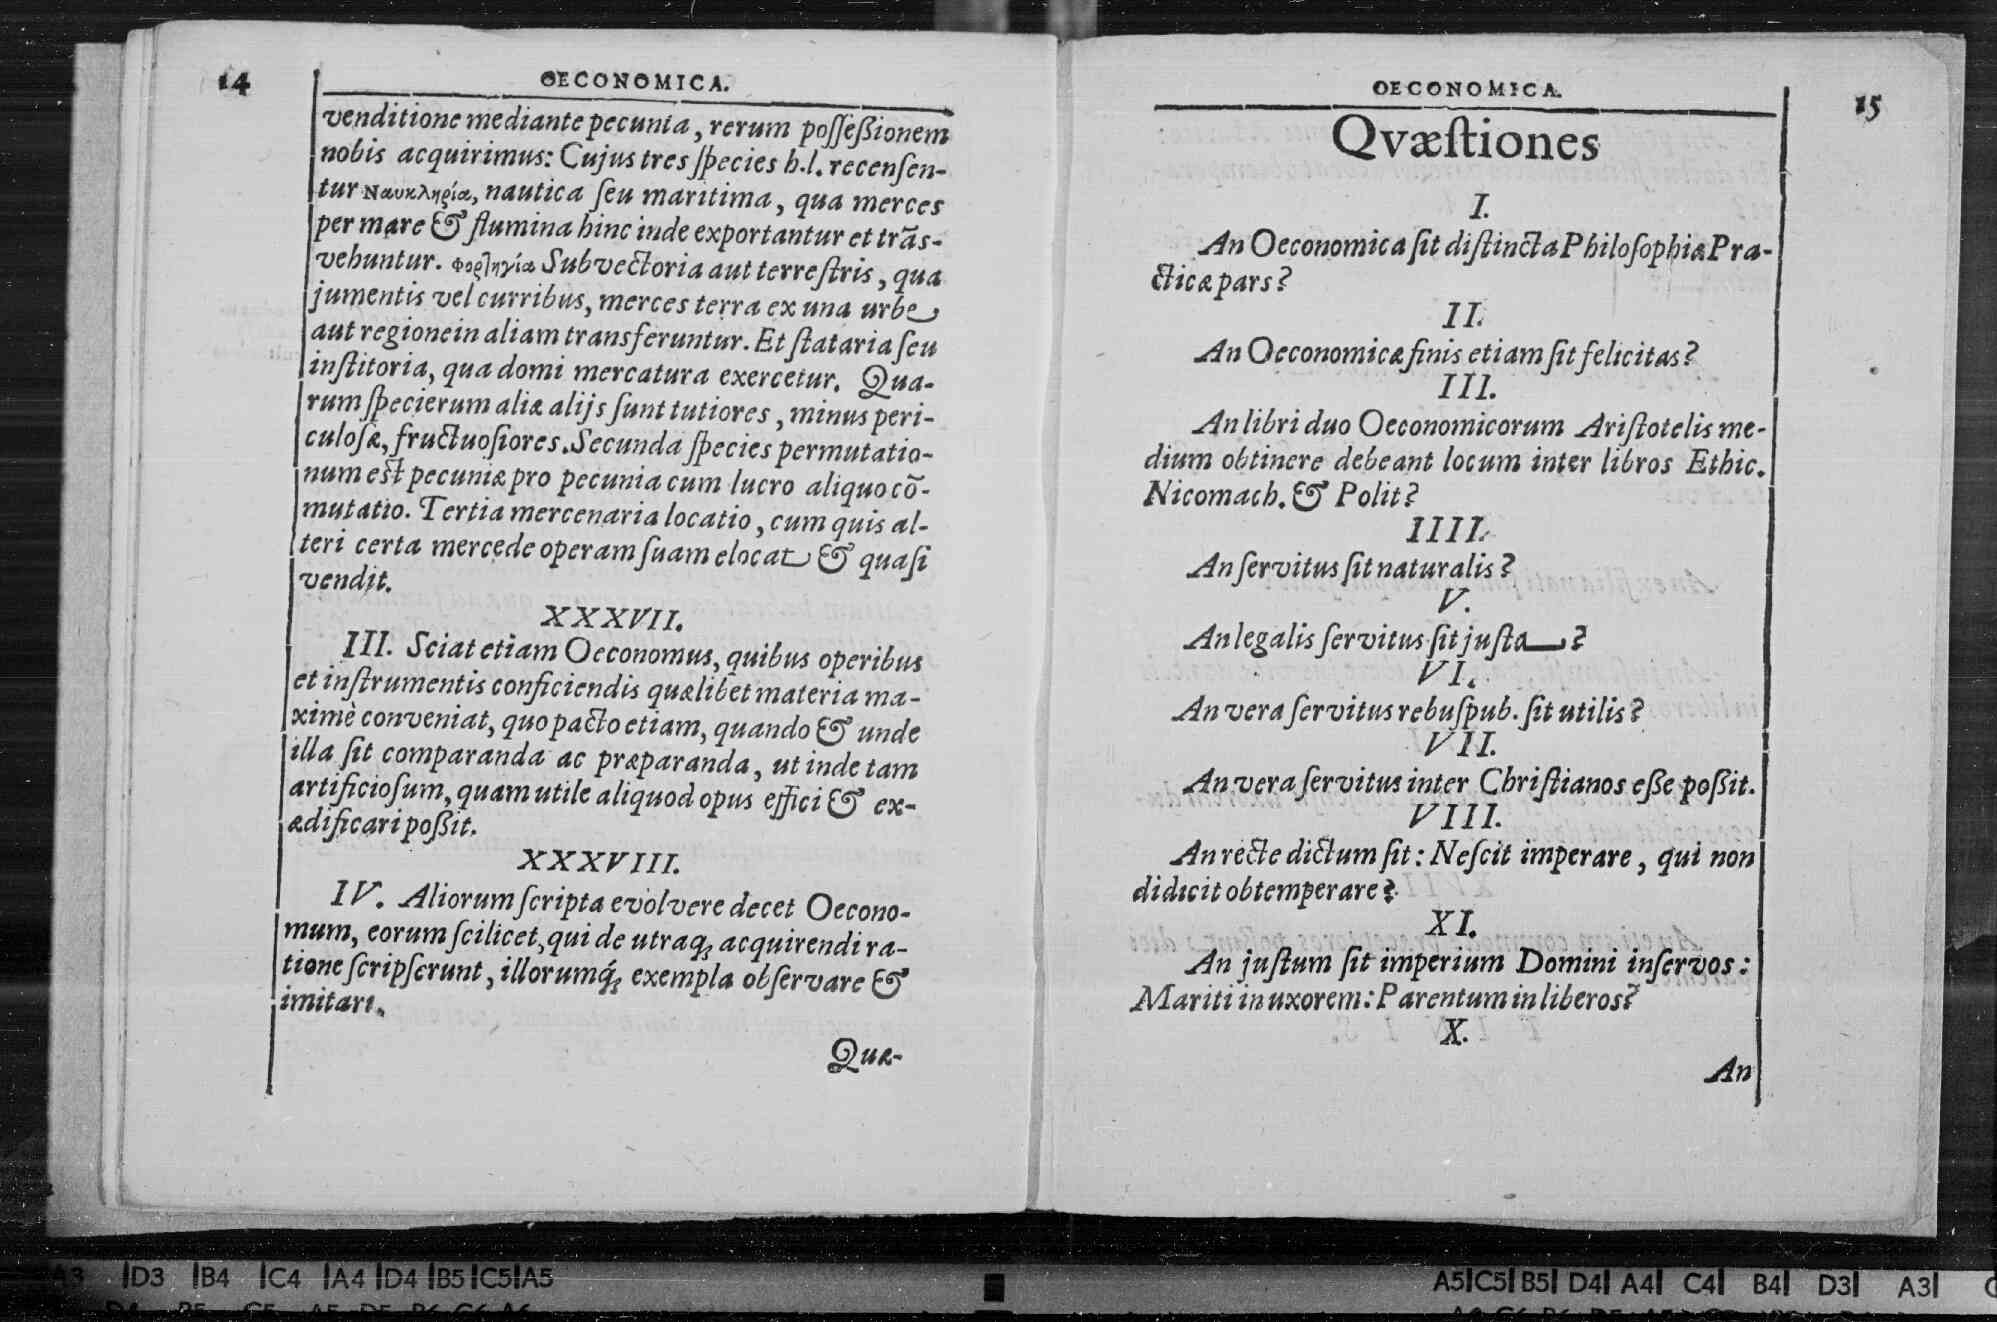 14
OECONOMICA.
venditione mediante pecunia, rerum poſſeßionem
nobis acquirimus: Cujus tres ſpecies h.l. recenſen-
tur Ναυκληρία, nautica ſeu maritima, qua merces
per mare & flumina hinc inde exportantur et trãs-
vehuntur. Φορτηγία Subvectoria aut terreſtris, qua
jumentis vel curribus, merces terra ex una urbe
aut regione in aliam transferuntur. Et ſtataria ſeu
inſtitoria, qua domi mercatura exercetur. Qua-
rum ſpecierum aliæ alijs ſunt tutiores, minus peri-
culoſæ, fructuoſiores. Secunda ſpecies permutatio-
num eſt pecuniæ pro pecunia cum lucro aliquo cõ-
mutatio. Tertia mercenaria locatio, cum quis al-
teri certa mercede operam ſuam elocat & quaſi
vendit.
XXXVII.
III. Sciat etiam Oeconomus, quibus operibus
et inſtrumentis conficiendis quælibet materia ma-
ximè conveniat, quo pacto etiam, quando & unde
illa ſit comparanda ac præparanda, ut inde tam
artificioſum, quam utile aliquod opus effici & ex-
ædificari poßit.
XXXVIII.
IV. Aliorum ſcripta evolvere decet Oecono-
mum, eorum ſcilicet, qui de utraq; acquirendi ra-
tione ſcripſerunt, illorumq́; exempla obſervare &
imitari.
Quæ-
OECONOMICA.
15
Qvæſtiones
I.
An Oeconomica ſit diſtincta Philoſophiæ Pra-
cticæ pars?
II.
An Oeconomicæ finis etiam ſit felicitas?
III.
An libri duo Oeconomicorum Ariſtotelis me-
dium obtinere debeant locum inter libros Ethic.
Nicomach. & Polit?
IIII.
An ſervitus ſit naturalis?
V.
An legalis ſervitus ſit juſta?
VI.
An vera ſervitus rebuſpub. ſit utilis?
VII.
An vera ſervitus inter Chriſtianos eße poßit.
VIII.
An recte dictum ſit: Neſcit imperare, qui non
didicit obtemperare?
XI.
An juſtum ſit imperium Domini in ſervos:
Mariti in uxorem: Parentum in liberos?
X.
An
A3 D3 B4 C4 A4 D4 B5 C5 A5
A5 C5 B5 D4 A4 C4 B4 D3 A3